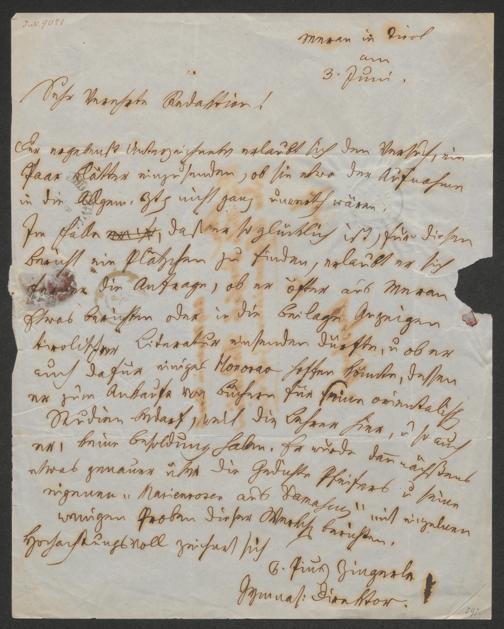 Meran in Tirol
am
3. Juni.
Sehr Verehrte Redaktion!
Der ergebenst Unterzeichnete erlaubt sich den Versuch, ein
Paar Blätter einzusenden, ob sie etwa der Aufnahme
in die Allgem. Ztg nicht ganz unwert wären.
Im Falle, daß er so glücklich ist, für diesen
Bericht ein Plätzchen zu finden, erlaubt er sich
die Anfrage, ob er öfter aus Meran
Etwas berichten oder in die Beilage Anzeigen
tirolischer Literatur einsenden dürfte, u ob er
auch dafür einiges Honorar hoffen könnte, dessen
er zum Ankaufe von Büchern für seine orientalisch
Studien bedarf, weil die Lehrer hier, u so auch
er, keine Besoldung haben. Er würde demnächstens
etwas genauer über die Gedichte Pfeifers u seine
eigenen "Marienrosen aus Damaskus" mit einzelnen
wenigen Proben dieser Werke berichten.
Hochachtungsvoll zeichnet sich
Pius Zingerle
Gymnas: Direktor.